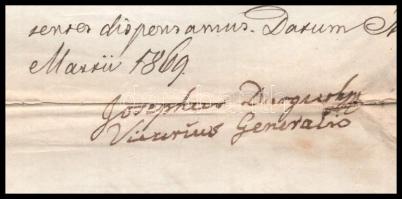 senses dispensamus. Datum
Martii 1869.
Josephus
Vicarius Generalis